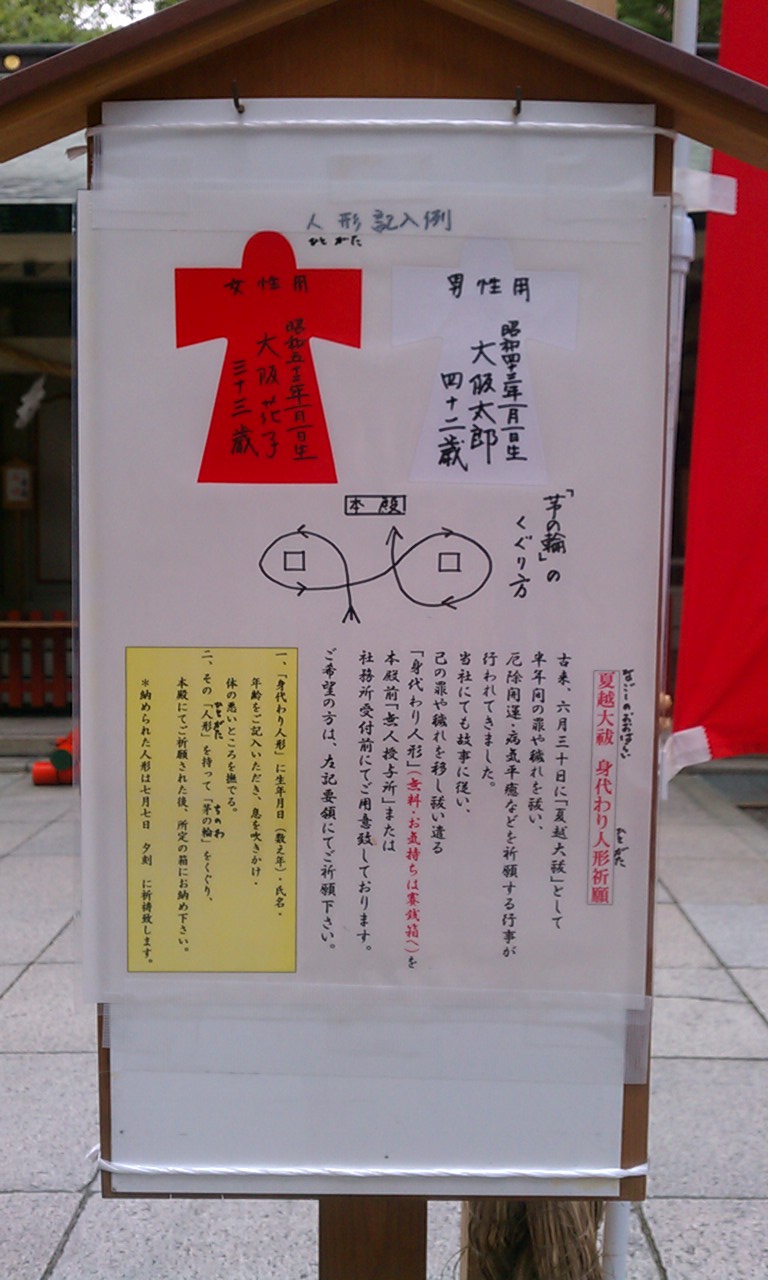 人形記入例
ひとがた
男性用
昭和四十三年一月一日生
大阪太郎
四十二歳
女性用
昭和五十三年一月一日生
大阪花子
三十三歳
本殿
「茅の輪」の
くぐり方
なごしのおおはらい
ひとがた
夏越大祓 身代わり人形祈願
古来、六月三十日に「夏越大祓」として
半年間の罪や穢れを祓い、
厄除開運・病気平癒などを祈願する行事が
行われてきました。
当社にても故事に従い、
己の罪や穢れを移し祓い遣る
「身代わり人形」(無料・お気持ちは賽銭箱へ)を
本殿前「無人授与所」または
社務所受付前にてご用意致しております。
ご希望の方は、左記要領にてご祈願下さい。
一、「身代わり人形」に生年月日(数え年)・氏名・
年齢をご記入いただき、息を吹きかけ・
体の悪いところを撫でる。
ひとがた
ちのわ
二、その「人形」を持って「茅の輪」をくぐり、
本殿にてご祈願された後、所定の箱にお納め下さい。
*納められた人形は七月七日 夕刻 に祈祷致します。